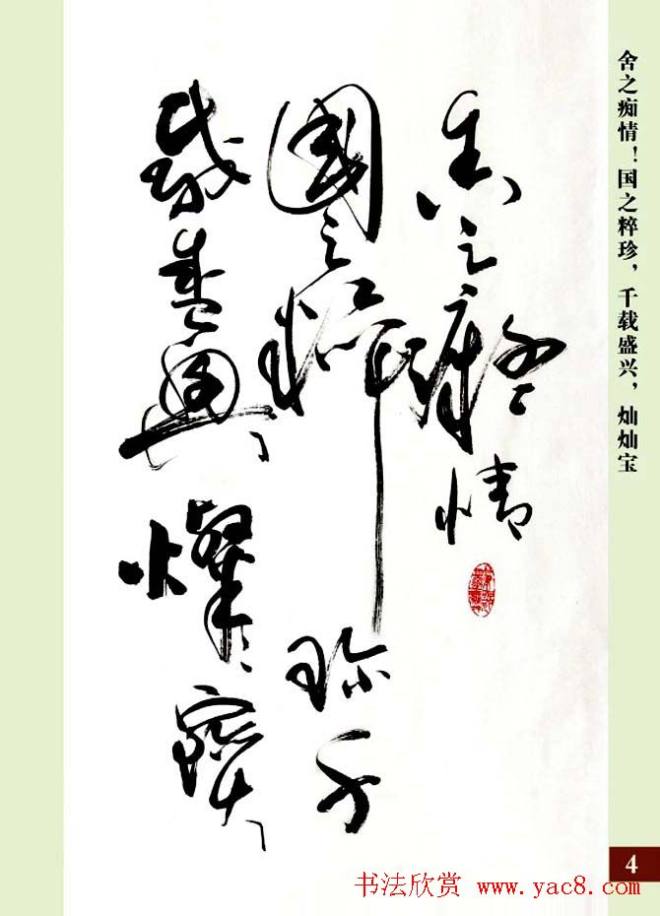 舍之痴情！国之粹珍，千载盛兴，灿灿宝
舍之癡情
國之粹珍千
載盛興燦〻寶
4
书法欣赏 www.yac8.com